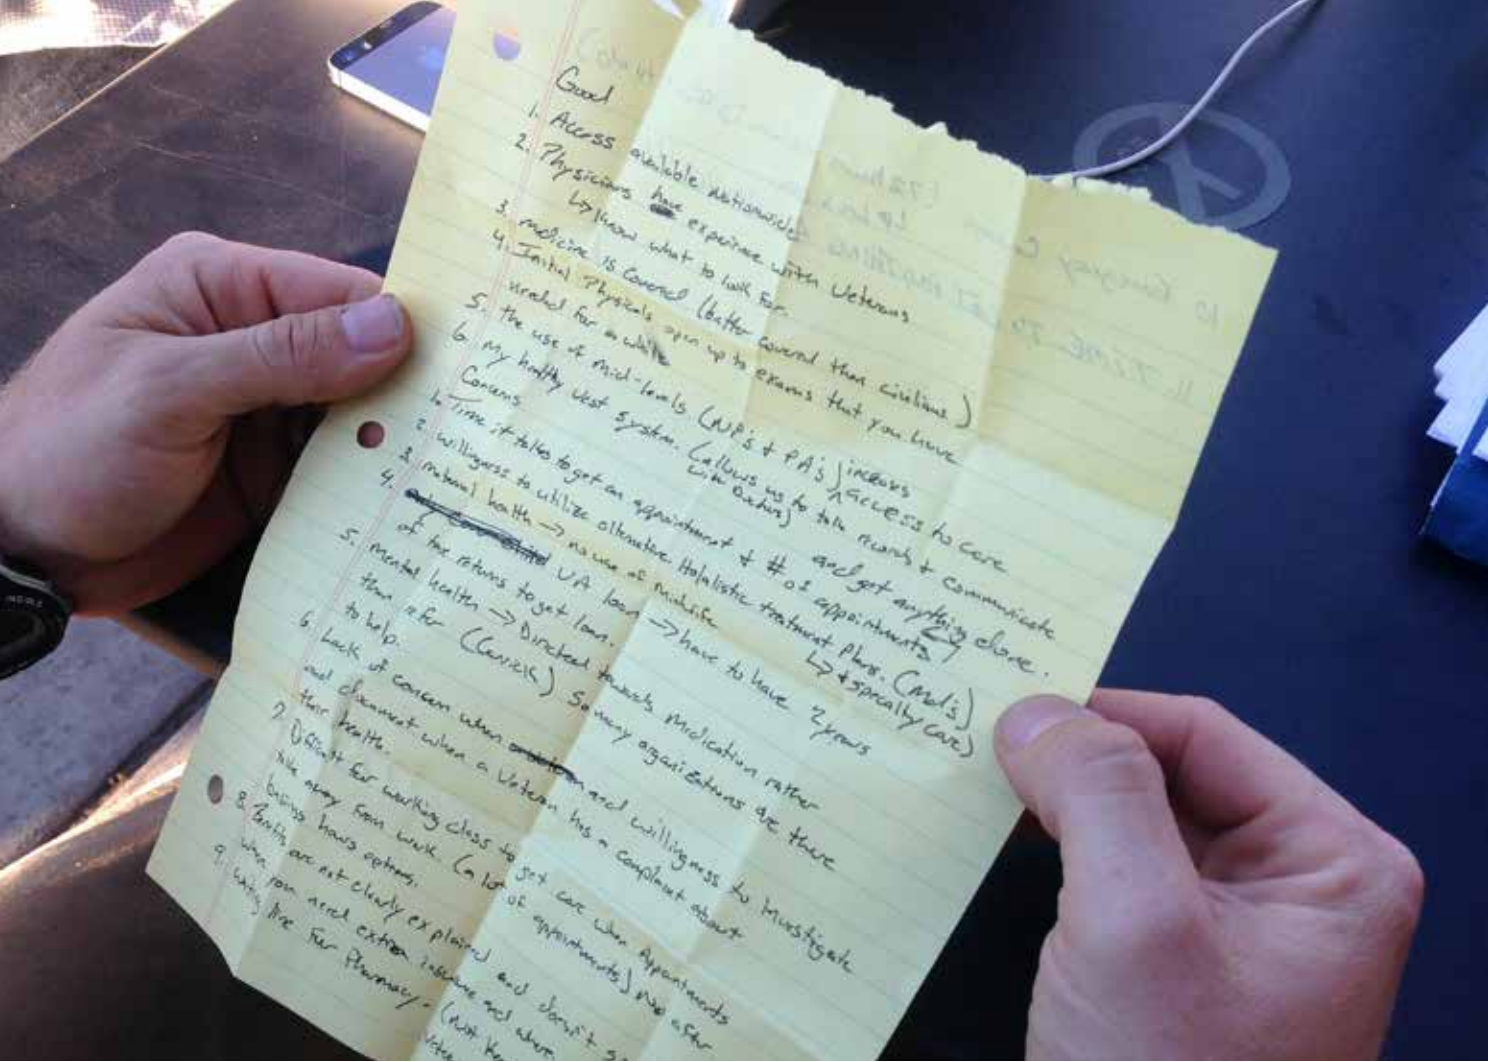 Good
1. Access available Nationwide
2. Physicians have experience with Veterans
↳ Know what to look for.
3. medicine is covered (better covered than civilians)
4. Initial Physicals open up to exams that you have
needed for a while
5. the use of mid-levels (NP's & PA's) increas access to care
6. My healthy vest system. (allows us to talk records & communicate
with Doctors) and get anything done.
Concerns
1. Time it takes to get an appointment & # of appointments
2. willigness to utilize alternative Holalistic treatment Plans. (Meds)
↳ & specialty care)
3. maternal health → no use of midwife
4. VA loan → have to have 2 years
of tax returns to get loan.
5. mental health → Directed towards Medication rather
than refer ( ) So many organizations are there
to help.
6. Lack of concern when and willingness to investigate
and document when a Veteran has a complaint about
their health.
7. Difficult for working class to get care when Appointments
take away from work. (a lot of appointments) No after
business hours options.
8. Benefits are not clearly explained and doesn't
when you need extra insurance and where
9. Waiting line for Pharmacy. (not